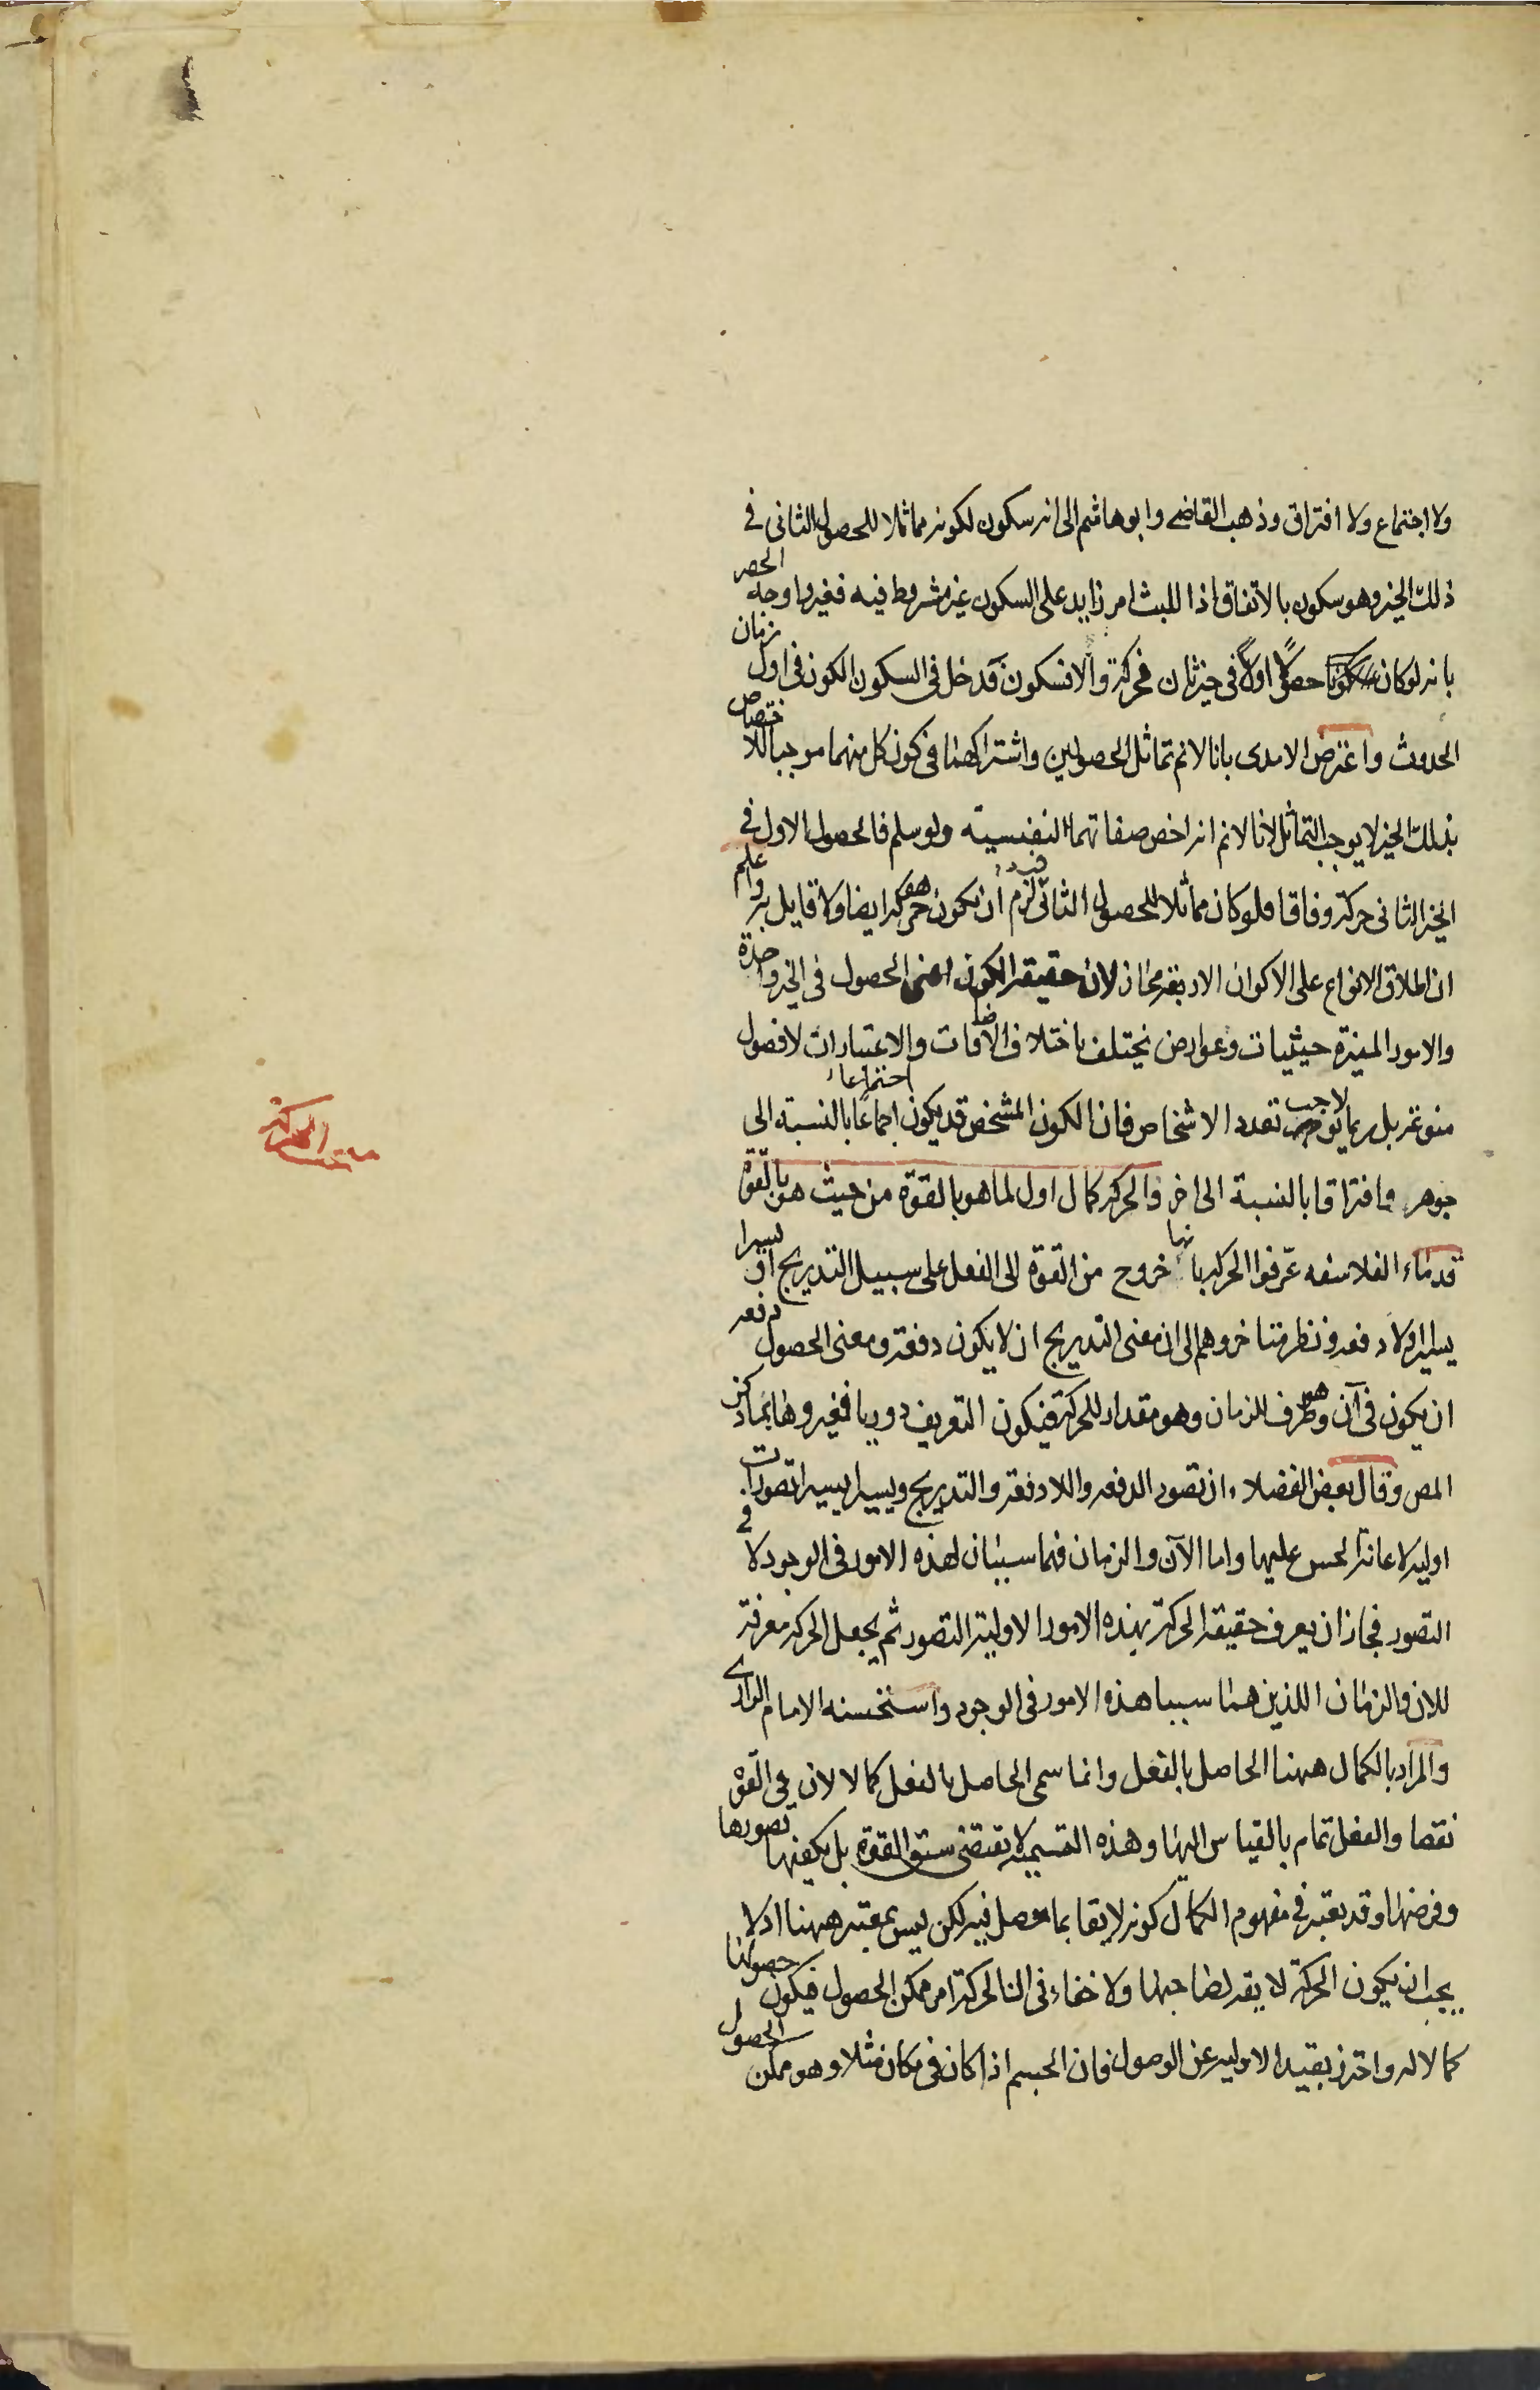 ولا اجتماع ولا افتراق وذهب القاضى وابو هاشم الى انه سكون لكونه مماثلا للحصول الثانى فى
ذلك الحيز وهو سكون بالاتفاق اذا للبث امر زايد على السكون غير مشروط فيه فغيروا وجه الحصر
بانه لو كان حصولا اولا فى حيز ثان فحركة والا فسكون فدخل فى السكون الكون فى اول زمان
الحدوث واعترض الامدى بانا لانم تماثل الحصولين واشتراكهما فى كون كل منهما موجبا للاختصاص
بذلك الحيز لا يوجب التماثل لانا لانم انه اخص صفاتهما النفسية ولو سلم فالحصول الاول فى
الحيز الثانى حركة وفاقا فلو كان مماثلا للحصول الثانى فيه لزم ان يكون هو حركة ايضا ولا قايل به واعلم
ان اطلاق الانواع على الاكوان الاربعة مجاز لان حقيقة الكون اعنى الحصول فى الحيز واحدة
والامور المميزة حيثيات وعوارض تختلف باختلاف الاضافات والاعتبارات لا فصول
منوعة بل ربما لا يوجب تعدد الاشخاص فان الكون المشخص قد يكون اجتماعا بالنسبة الى
جوهر وافتراقا بالنسبة الى اخر والحركة كمال اول لما هو بالقوة من حيث هو بالقوة
قدماء الفلاسفه عرفوا الحركة بانها خروج من القوة الى الفعل على سبيل التدريج او يسيرا
يسيرا او لا دفعة ونظر متاخروهم الى ان معنى التدريج ان لا يكون دفعة ومعنى الحصول دفعة
ان يكون فى آن وهو طرف للزمان وهو مقدار للحركة فيكون التعريف دوريا فغيروها بما ذكره
المص وقال بعض الفضلاء ان تصور الدفعة واللادفعة والتدريج ويسيرا يسيرا تصورات
اولية لاعانة الحس عليها واما الآن والزمان فهما سببان لهذه الامور فى الوجود لا فى
التصور فجاز ان يعرف حقيقة الحركة بهذه الامور الاولية التصور ثم يجعل الحركة معرفة
للان والزمان اللذين هما سببا هذه الامور فى الوجود واستحسنه الامام الرازى
والمراد بالكمال ههنا الحاصل بالفعل وانما سمى الحاصل بالفعل كمالا لان فى القوة
نقصا والفعل تمام بالقياس اليها وهذه التسمية لا تقتضى سبق القوة بل يكفيها تصورها
وفرضها وقد يعتبر فى مفهوم الكمال كونه لايقا بما حصل فيه لكن ليس بمعتبر ههنا اذ لا
يجب ان يكون الحركة لايقة لصاحبها ولا خفاء فى ان الحركة امر ممكن الحصول فيكون حصولها
كمالا له واحترز بقيد الاولية عن الوصول فان الجسم اذا كان فى مكان مثلا وهو ممكن الحصول
مبحث الحركة